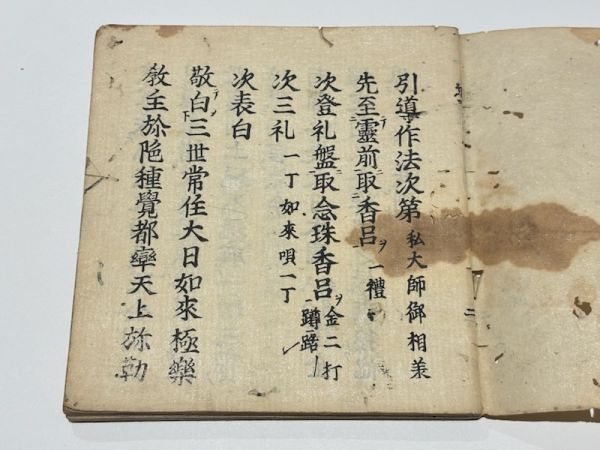 引導作法次第 私大師御相承
先至靈前取香呂ヲ 一禮
次登礼盤取念珠香呂ヲ 金二打 蹲踞
次三礼 一丁 如來唄一丁
次表白
敬白三世常住大日如來極樂
敎主旀陁種覺都率天上旀勒